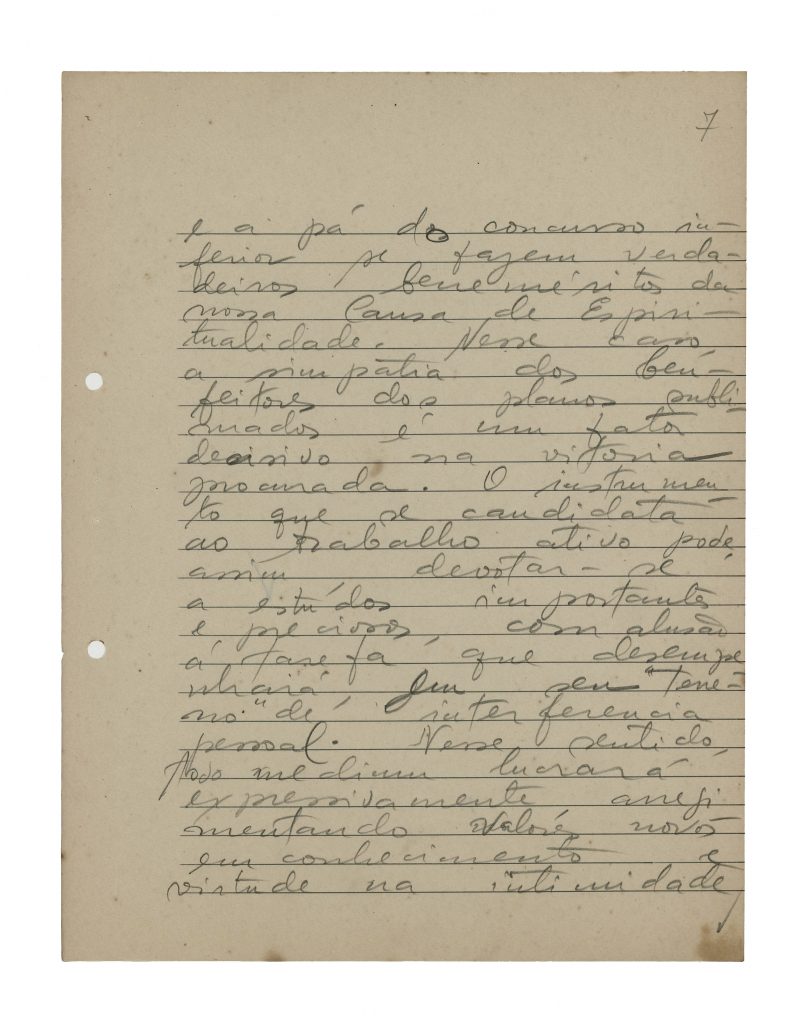 7
e a pá do concurso in-
ferior se fazem verda-
deiros beneméritos da
nossa Causa de Espiri-
tualidade. Nesse caso
a simpatia dos ben-
feitores dos planos subli-
mados é um fato
decisivo na vitoria
procurada. O instrumen
to que se candidata
ao trabalho ativo pode,
assim, devotar-se
a estudos importantes
e preciosos, com alusão
á tarefa que desempe
nhará, em seu "terre-
no" de interferencia
pessoal. Nesse sentido,
todo medium lucrará
expressivamente arregi
mentando valores novos
em conhecimento e
virtude na intimidade